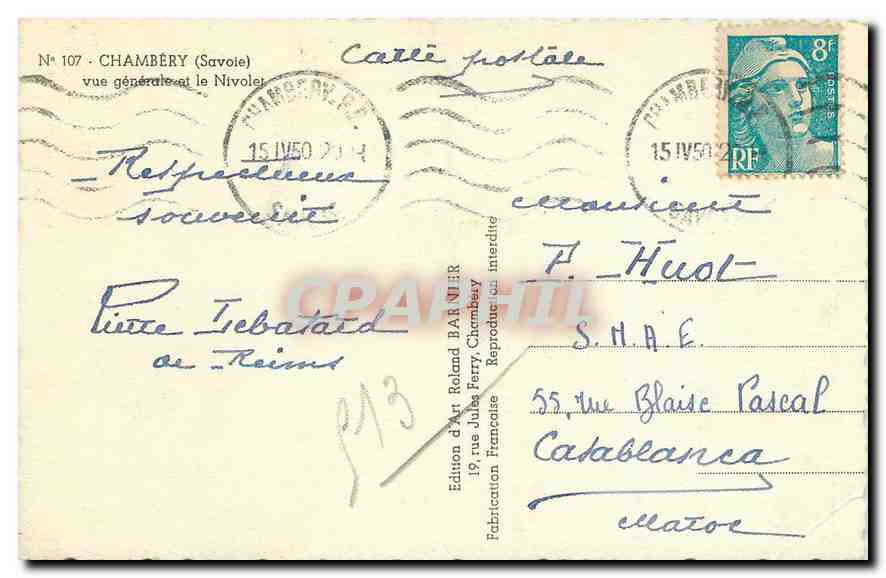 Nº 107 - CHAMBÉRY (Savoie)
vue générale et le Nivolet
Carte postale
CHAMBERY R.P.
15 IV 50
CHAMBERY
15 IV 50
8F
POSTES
RF
Respectueux
souvenir
Pierre Lebatard
de Reims
Edition d'Art Roland BARNIER
19, rue Jules Ferry, Chambéry
Fabrication Française Reproduction interdite
CPAPHIL
Monsieur
P. Huot
S.M.A.E.
55, rue Blaise Pascal
Casablanca
Maroc